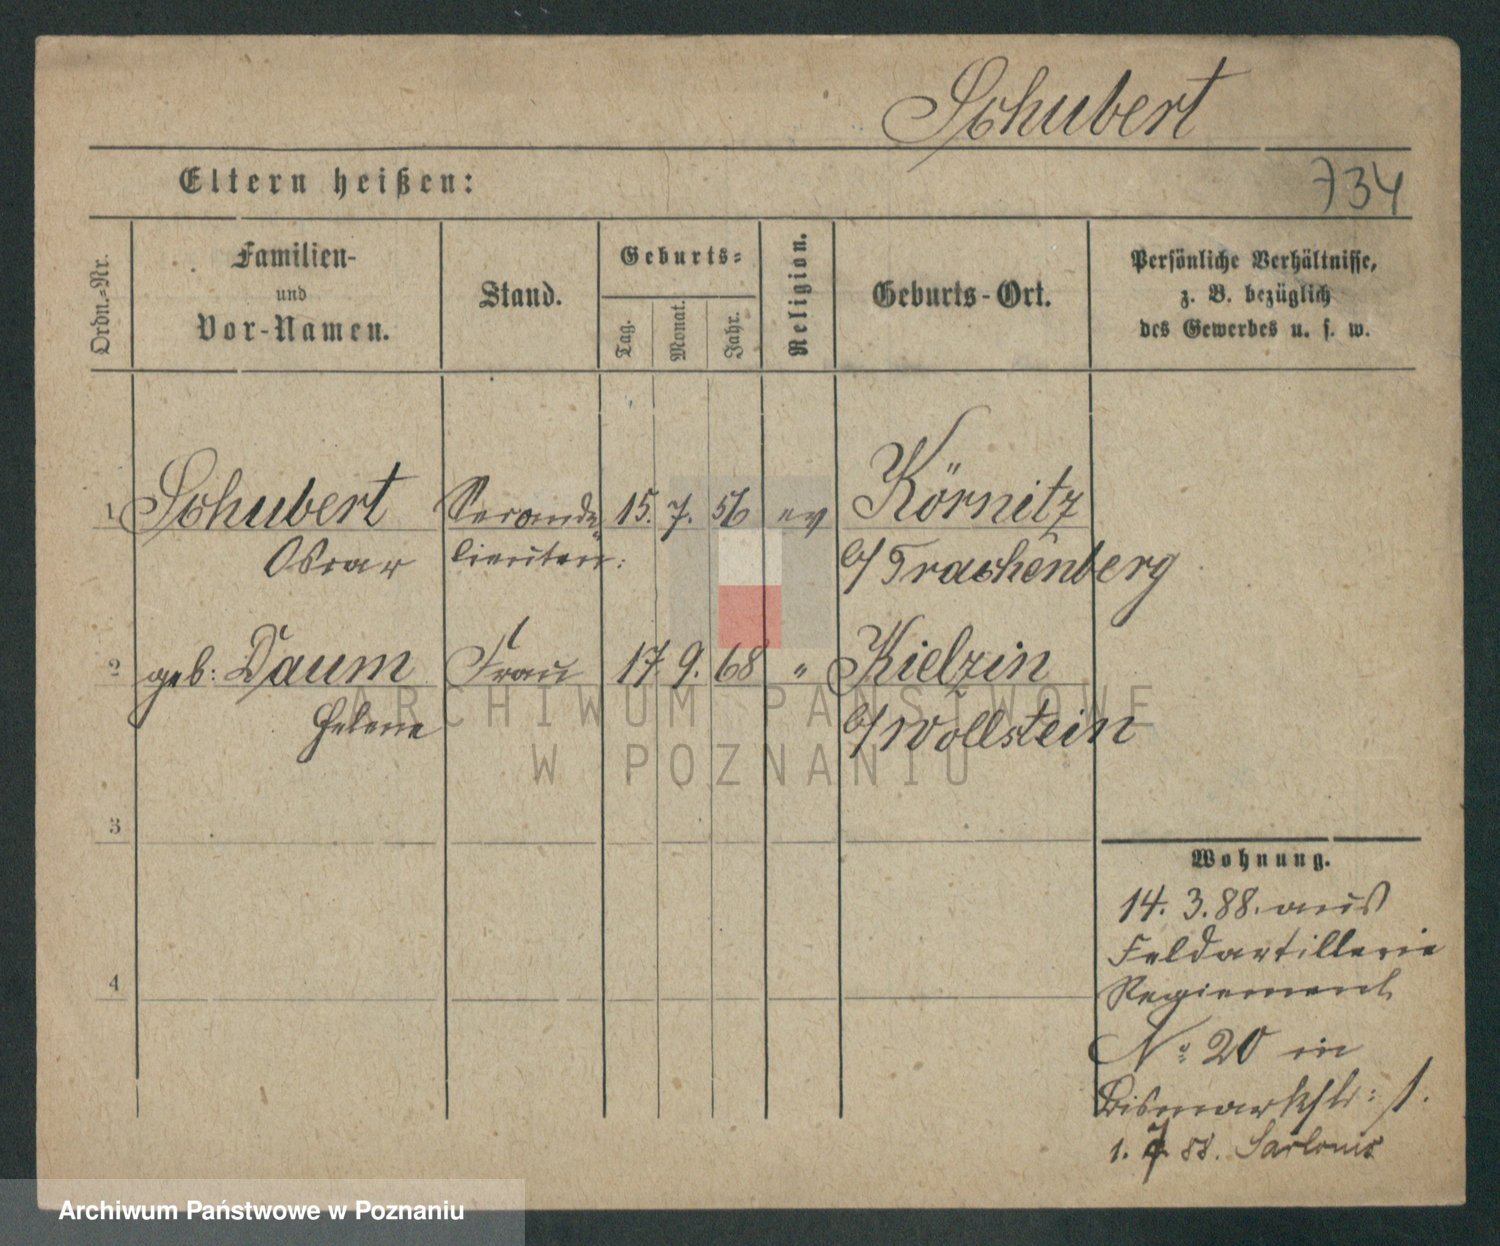 Schubert
Eltern heißen:
734
Ordn.-Nr.
Familien-
und
Vor-Namen.
Stand.
Geburts-
Tag.
Monat.
Jahr.
Religion.
Geburts-Ort.
Persönliche Verhältnisse,
z. B. bezüglich
des Gewerbes u. s. w.
1 Schubert Seconde 15. 7. 56 ev Körnitz
Oscar lieuten: b/ Trachenberg
2 geb: Daum Frau 17. 9. 68 " Kielzin
Helene b/ Wollstein
ARCHIWUM PAŃSTWOWE
W POZNANIU
3
4
Wohnung.
14. 3. 88. aus
Feldartillerie
Regiement
No 20 in
Bismarkstr: 1.
1. 7 88. Sarlouis
Archiwum Państwowe w Poznaniu